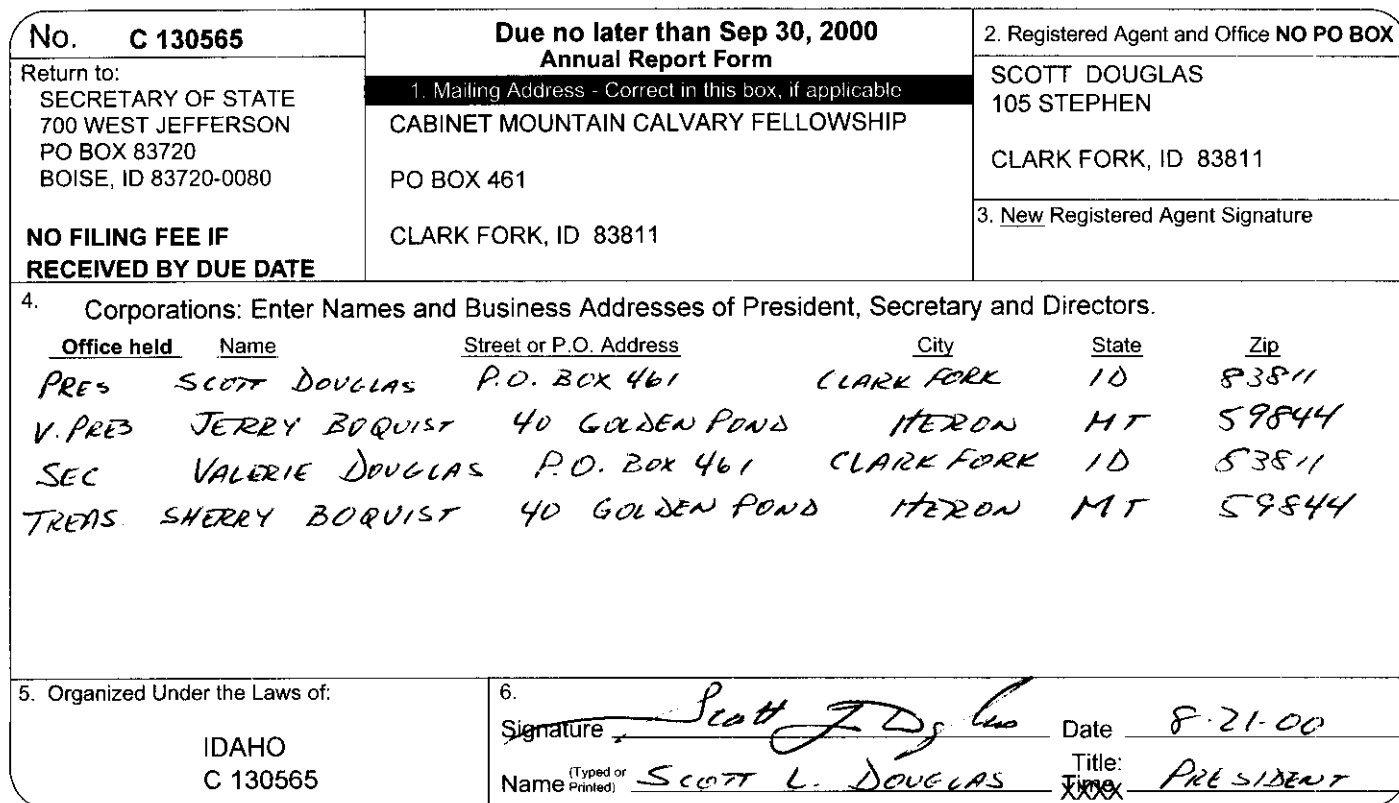 No. C 130565
Return to:
SECRETARY OF STATE
700 WEST JEFFERSON
PO BOX 83720
BOISE, ID 83720-0080
NO FILING FEE IF
RECEIVED BY DUE DATE
Due no later than Sep 30, 2000
Annual Report Form
1. Mailing Address - Correct in this box, if applicable
CABINET MOUNTAIN CALVARY FELLOWSHIP
PO BOX 461
CLARK FORK, ID 83811
2. Registered Agent and Office NO PO BOX
SCOTT DOUGLAS
105 STEPHEN
CLARK FORK, ID 83811
3. New Registered Agent Signature
4. Corporations: Enter Names and Business Addresses of President, Secretary and Directors.
Office held Name Street or P.O. Address City State Zip
PRES SCOTT DOUGLAS P.O. BOX 461 CLARK FORK ID 83811
V. PRES JERRY BOQUIST 40 GOLDEN POND HERON MT 59844
SEC VALERIE DOUGLAS P.O. BOX 461 CLARK FORK ID 83811
TREAS. SHERRY BOQUIST 40 GOLDEN POND HERON MT 59844
5. Organized Under the Laws of:
IDAHO
C 130565
6.
Signature Scott L Douglas Date 8-21-00
Name (Typed or Printed) SCOTT L. DOUGLAS Title: PRESIDENT